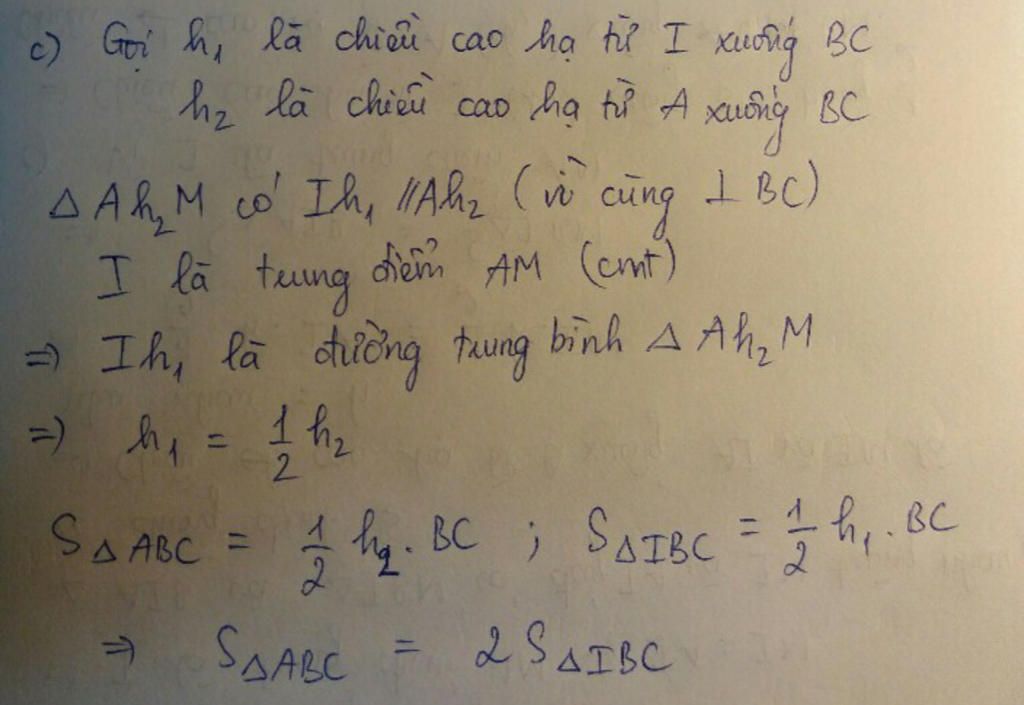 c) Gọi h₁ là chiều cao hạ từ I xuống BC
h₂ là chiều cao hạ từ A xuống BC
Δ Ah₂M có Ih₁ // Ah₂ (vì cùng ⊥ BC)
I là trung điểm AM (cmt)
=> Ih₁ là đường trung bình Δ Ah₂M
=> h₁ = 1/2 h₂
S ΔABC = 1/2 h₂. BC ; S ΔIBC = 1/2 h₁. BC
=> S ΔABC = 2 S ΔIBC